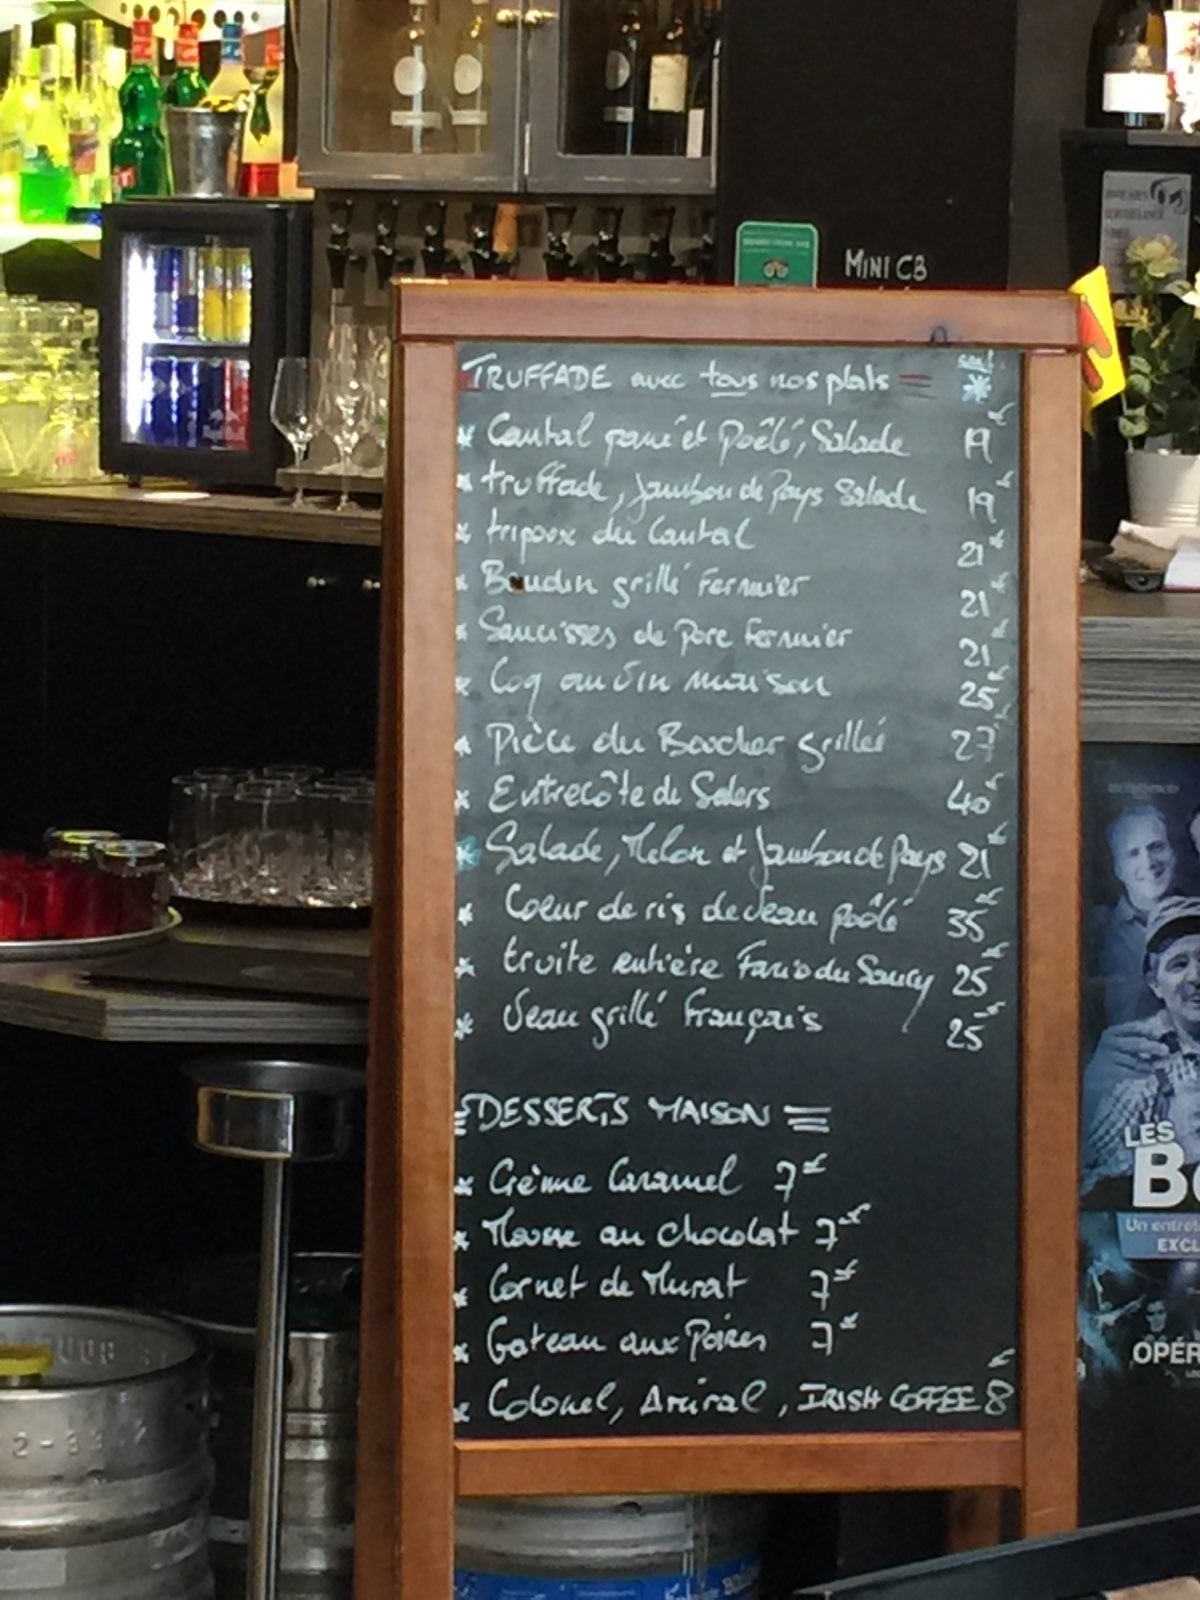 MINI CB
TRUFFADE avec tous nos plats = sauf *
* Cantal pané et Poêlé, Salade 19€
* truffade, Jambon de Pays Salade 19€
* tripoux du Cantal 21€
* Boudin grillé Fermier 21€
* Saucisses de Porc Fermier 21€
* Coq au Vin maison 25€
* Pièce du Boucher grillée 27€
* Entrecôte de Salers 40€
* Salade, Melon et Jambon de Pays 21€
* Coeur de ris de Veau poêlé 35€
* truite entière Fario du Saucy 25€
* Veau grillé Français 25€
= DESSERTS MAISON =
* Crème Caramel 7€
* Mousse au Chocolat 7€
* Cornet de Murat 7€
* Gateau aux Poires 7€
* Colonel, Amiral, IRISH COFFEE 8€
LES
B
Un entre
EXCL
OPÉR